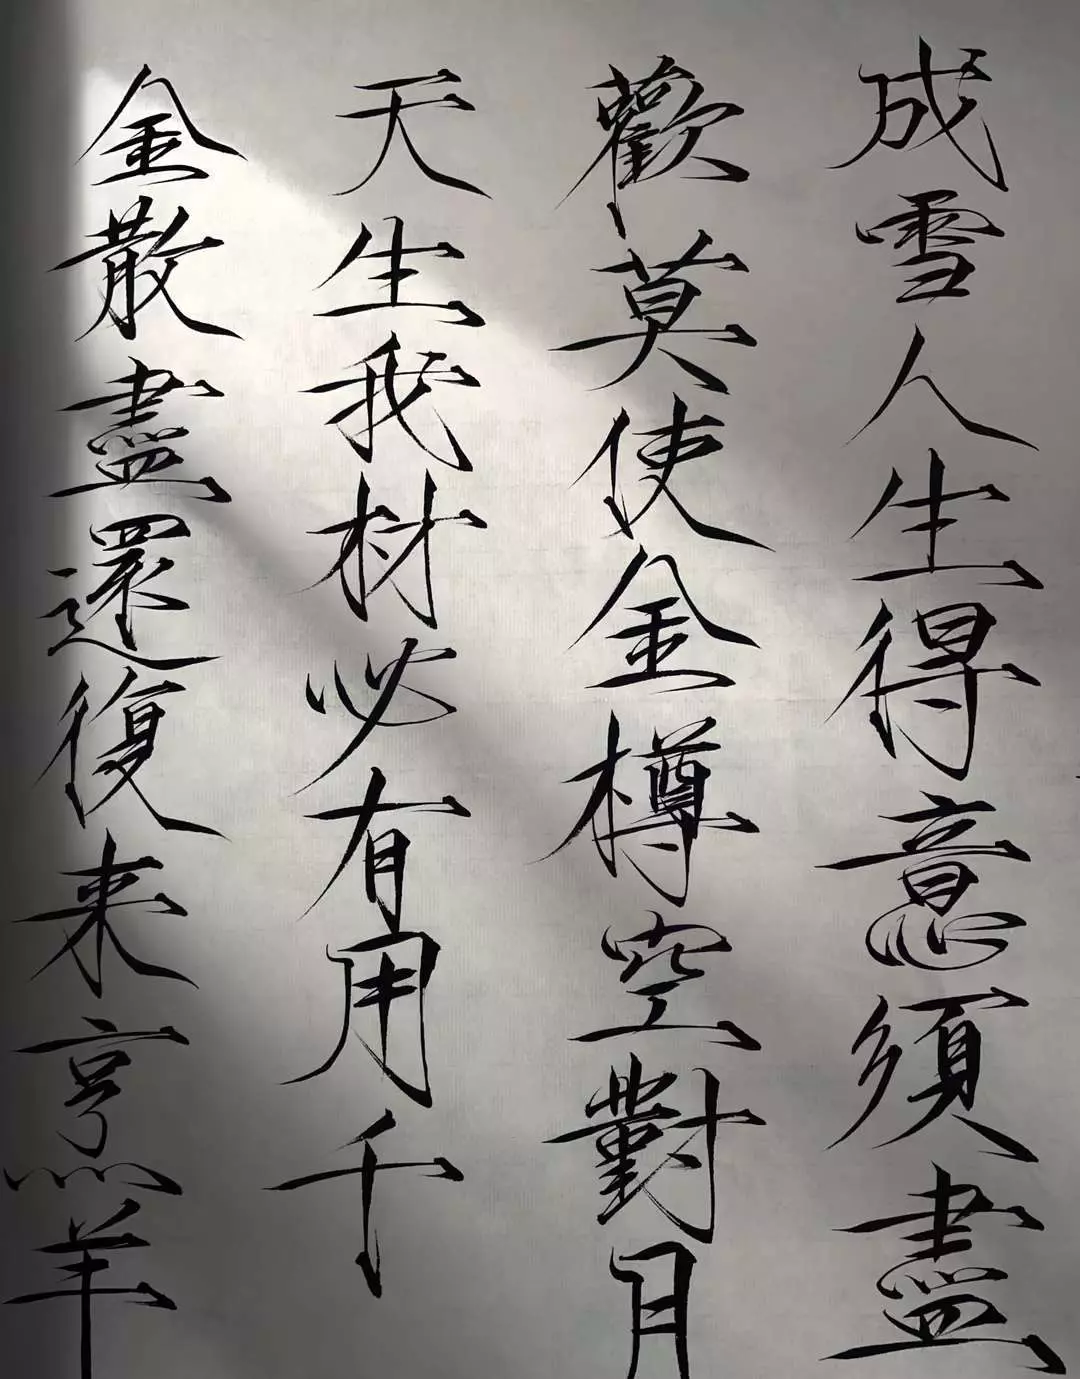 成雪人生得意須盡
歡莫使金樽空對月
天生我材必有用千
金散盡還復来烹羊